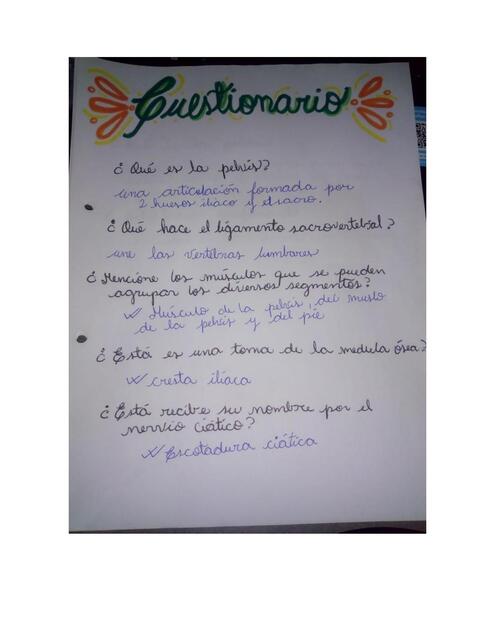 Cuestionario
¿Qué es la pelvis?
una articulación formada por
2 huesos iliaco y el sacro.
¿Qué hace el ligamento sacrovertebral?
une las vertebras lumbares
¿Mencione los músculos que se pueden
agrupar los diversos segmentos?
Músculo de la pelvis, del muslo
de la pelvis y del pie
¿Está es una toma de la medula ósea?
cresta iliaca
¿Está recibe su nombre por el
nervio ciático?
Escotadura ciática